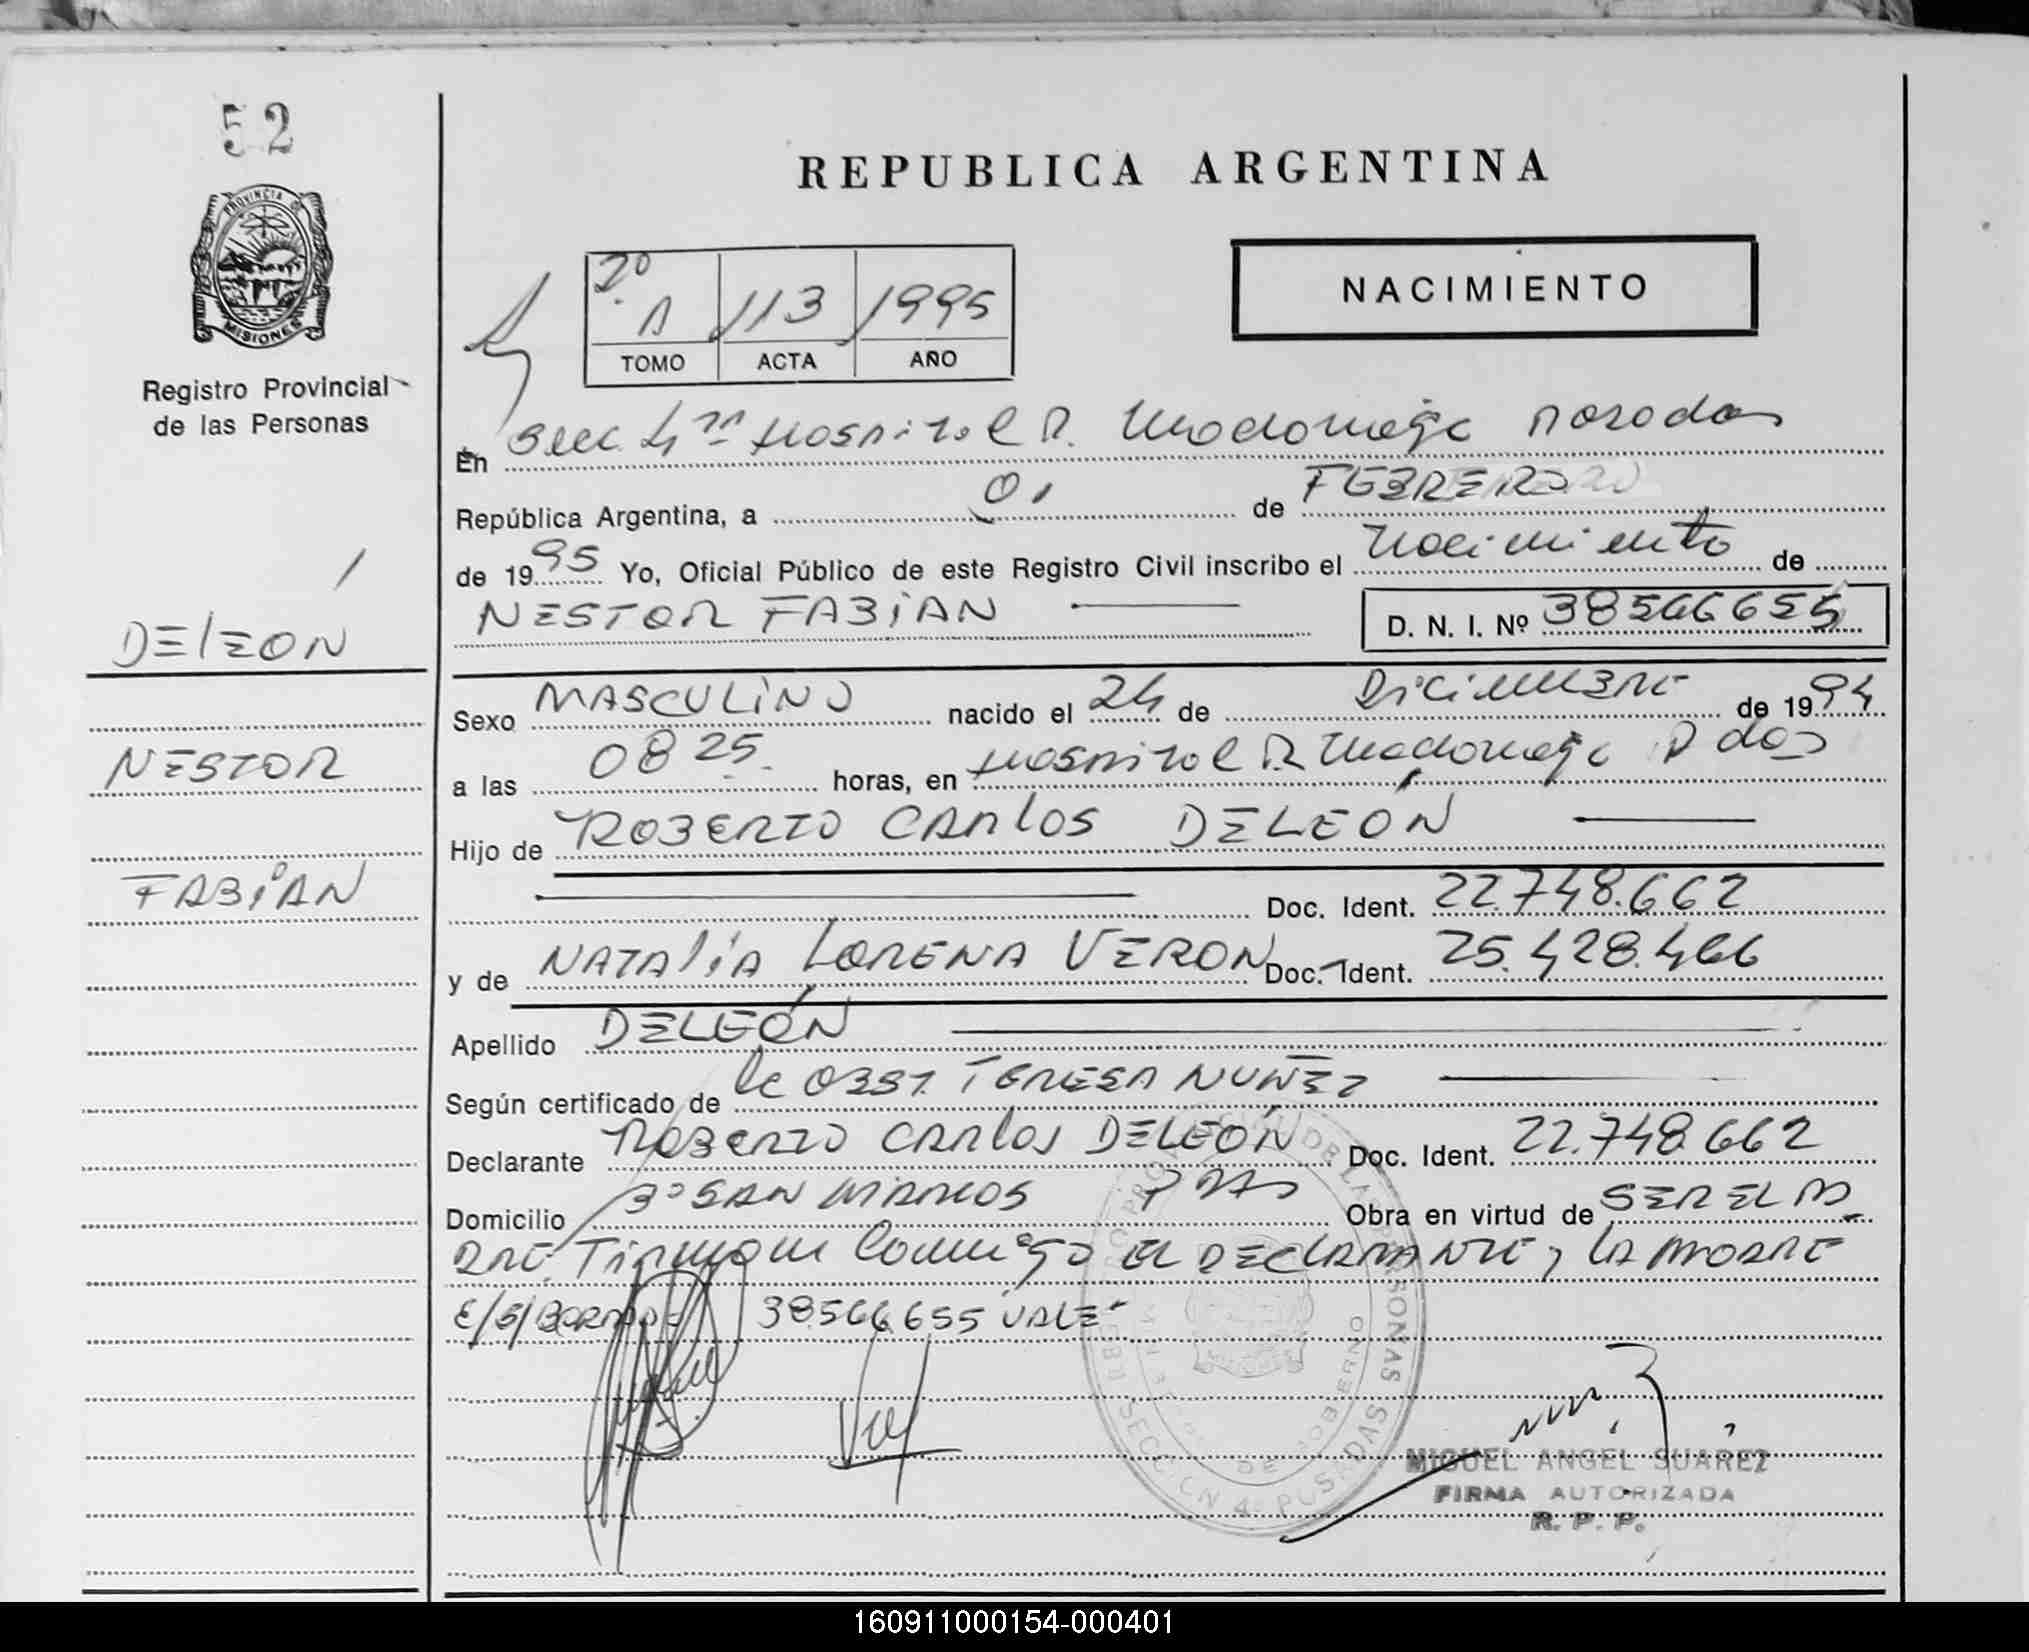 52
PROVINCIA DE
MISIONES
Registro Provincial
de las Personas
DELEON
NESTOR
FABIAN
REPUBLICA ARGENTINA
NACIMIENTO
2º A 113 1995
TOMO ACTA AÑO
En Secc. 4ta Hospital R. Madariaga Posadas
República Argentina, a 01 de FEBRERO
de 1995 Yo, Oficial Público de este Registro Civil inscribo el Nacimiento de
NESTOR FABIAN D. N. I. Nº 38566655
Sexo MASCULINO nacido el 24 de DICIEMBRE de 1994
a las 08 25 horas, en Hospital R Madariaga Pdas
Hijo de ROBERTO CARLOS DELEÓN
Doc. Ident. 22.748.662
y de NATALIA LORENA VERON Doc. Ident. 25.428.466
Apellido DELEÓN
Según certificado de la OBST. TERESA NUÑEZ
Declarante ROBERTO CARLOS DELEÓN Doc. Ident. 22.748.662
Domicilio Bº SAN MARCOS PDAS Obra en virtud de SER EL PA
DRE. Firman conmigo EL DECLARANTE y LA MADRE
E/S/BORRADO= 38566655 VALE-
SECCION 4ª POSADAS
DE GOBERNO
MIGUEL ANGEL SUAREZ
FIRMA AUTORIZADA
R. P. P.
160911000154-000401